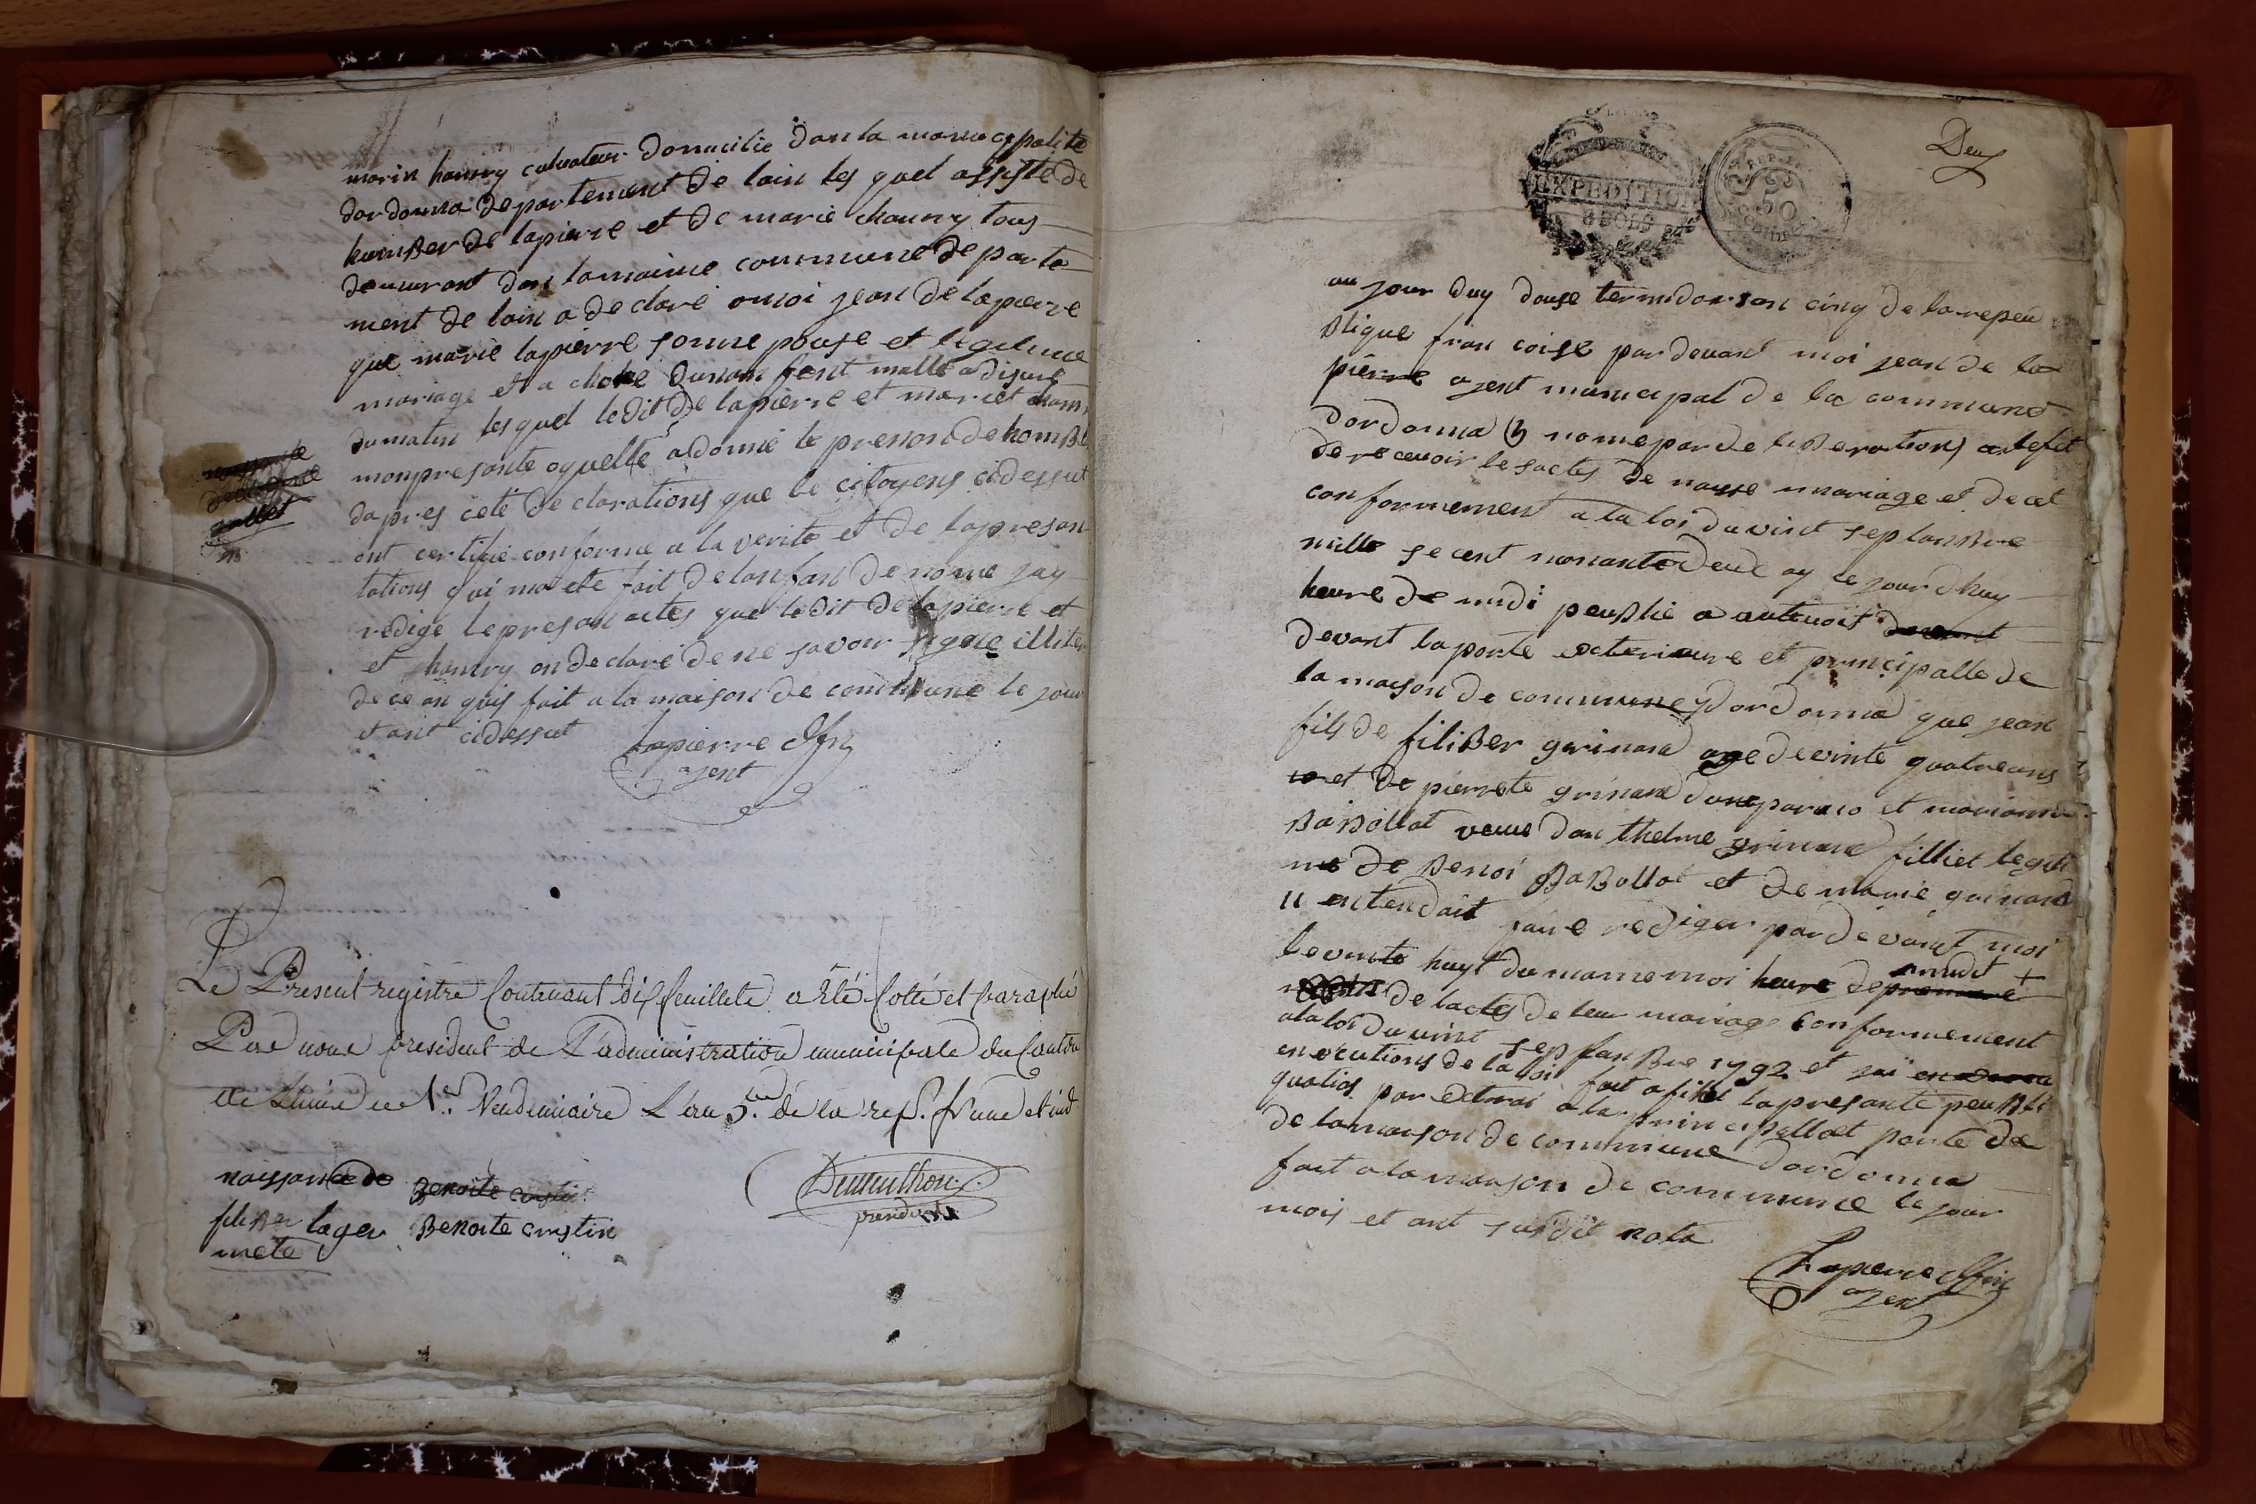 morin hanry cultivateur Domicilie Dan la municipalite
dordonna Departement de lain les quel assisté de
humBer de lapierre et de marie chanry tous
demeurant dan lamaime commune departe
ment de lain a declaré amoi jean de lapierre
que marie lapierre sonne pouse et legitime
mariage et a
du matin les quel ledit de lapierre et mariet
monpresante aquelle a donné le prenon de homBe
dapres ceté declarations que le citoyens cidessut
ont certifié conforme a la verite et de lapresan
tations qui ma eté fait de lanfan de nome jay
redigé lepresan actes que ledit delapierre et
et hanry on declaré de ne savoir signe
de ce fait a la maison de commune le jour
et ant cidessut
lapierre
agent
Le Present registre Contenant dix feuillets a Eté Cotté et paraphé
Par nous president de L'administration municipale du Canton
de ce 1er Vendemiaire L'an 5me de la rep. frane et ind
president
naissance de Benoite
filiBer lager Benoite custin
mete
Deux
EXPEDITION
8 SOLS
50
au jour duy douse termidor lan cinq de la repeu
Blique fran coise par devant moi jean de la
pierre agent municipal de la commune
Dordonna nome par deliBerations a lefet
de recevoir lesactes de nayse mariage et decet
conformement a la loi du vint septanBre
mille se cent nonante deux ay le jour dhuy
heure de midi peuBlié a autenoit devant
devant la porte exterieure et principalle de
la maison de commune dordonna que jean
fils de filiBer grinand age de vinte quatre ans
et de pierrete grinand dune par nio et marianne
BaBollat veuve dan thelme grinand filliet legiti
me de Benoi BaBollat et de marie grinand
il entendait faire rediger par devant moi
levinte huyt du mame moi heure de premiere midit +
de lactes de leur mariage conformement
a la loi du vint septanBre 1792 et jai
en execution de la loi fait afiche la presante peuBli
quation par extrai a la principallet porte de
de lamaison de commune Dordonna
fait a la maison de commune le jour
mois et ant susdit nota
Lapierre
agent